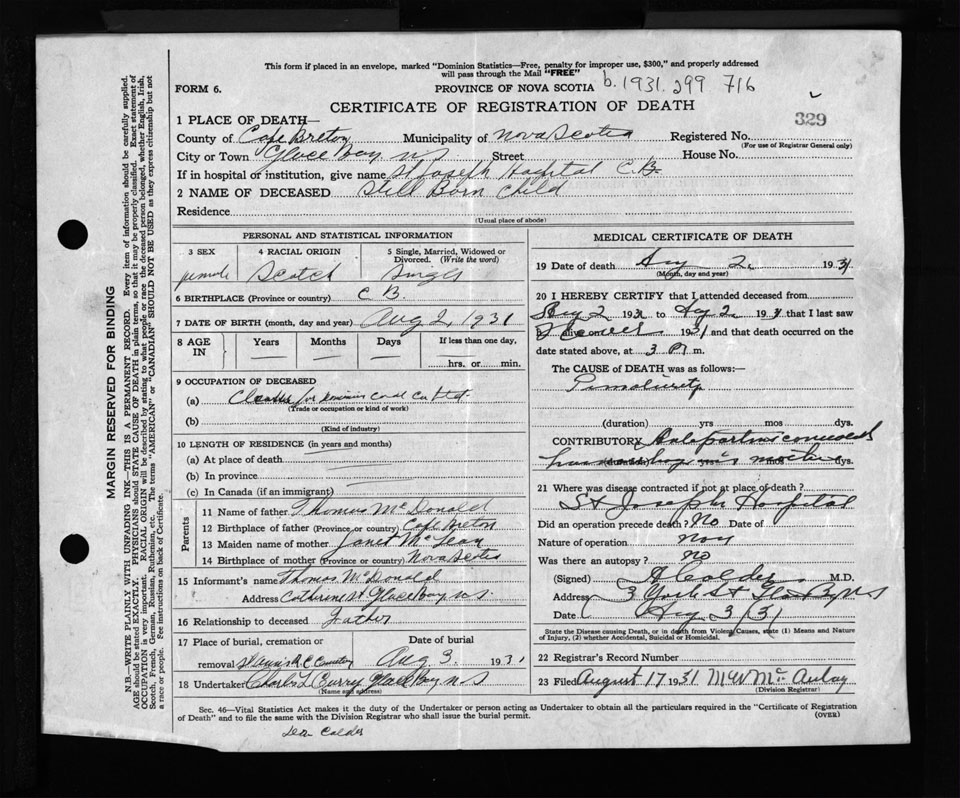 This form if placed in an envelope, marked "Dominion Statistics—Free, penalty for improper use, $300," and properly addressed
will pass through the Mail "FREE"
FORM 6.
PROVINCE OF NOVA SCOTIA
b. 1931. 299 716
CERTIFICATE OF REGISTRATION OF DEATH
329
1 PLACE OF DEATH—
County of Cape Breton Municipality of Nova Scotia Registered No.
(For use of Registrar General only)
City or Town Glace Bay NS Street House No.
If in hospital or institution, give name St Joseph Hospital C.B.
2 NAME OF DECEASED Still Born Child
Residence
(Usual place of abode)
PERSONAL AND STATISTICAL INFORMATION
3 SEX
female
4 RACIAL ORIGIN
Scotch
5 Single, Married, Widowed or
Divorced. (Write the word)
Single
6 BIRTHPLACE (Province or country) C B.
7 DATE OF BIRTH (month, day and year) Aug 2, 1931
8 AGE
IN
Years Months Days If less than one day,
hrs. or min.
9 OCCUPATION OF DECEASED
(a) for coal
(Trade or occupation or kind of work)
(b)
(Kind of industry)
10 LENGTH OF RESIDENCE (in years and months)
(a) At place of death
(b) In province
(c) In Canada (if an immigrant)
Parents
11 Name of father Thomas McDonald
12 Birthplace of father (Province or country) Cape Breton
13 Maiden name of mother Janet McLean
14 Birthplace of mother (Province or country) Nova Scotia
15 Informant's name Thomas McDonald
Address Cathrine St. Glace Bay N.S.
16 Relationship to deceased Father
17 Place of burial, cremation or
removal R C Cemetery
Date of burial
Aug 3. 1931
18 Undertaker Charles L Curry Glace Bay N S
(Name and address)
MEDICAL CERTIFICATE OF DEATH
19 Date of death Aug 2. 1931
(Month, day and year)
20 I HEREBY CERTIFY that I attended deceased from
Aug 2 1931 to Aug 2 1931 that I last saw
alive on 1931 and that death occurred on the
date stated above, at 3 P m.
The CAUSE of DEATH was as follows:—
Prematurity
(duration) yrs mos dys.
CONTRIBUTORY
(duration) yrs mos dys.
21 Where was disease contracted if not at place of death?
St Joseph Hospital
Did an operation precede death? No Date of
Nature of operation
Was there an autopsy? no
(Signed) A Calder M.D.
Address 3 York St Glace Bay NS
Date Aug. 3/31
State the Disease causing Death, or in death from Violent Causes, state (1) Means and Nature
of Injury, (2) whether Accidental, Suicidal or Homicidal.
22 Registrar's Record Number
23 Filed August 17 1931 M W McAulay
(Division Registrar)
Sec. 46—Vital Statistics Act makes it the duty of the Undertaker or person acting as Undertaker to obtain all the particulars required in the "Certificate of Registration
of Death" and to file the same with the Division Registrar who shall issue the burial permit.
(OVER)
Calder
MARGIN RESERVED FOR BINDING
N.B.—WRITE PLAINLY WITH UNFADING INK—THIS IS A PERMANENT RECORD. Every item of information should be carefully supplied.
AGE should be stated EXACTLY. PHYSICIANS should STATE CAUSE OF DEATH in plain terms, so that it may be properly classified. Exact statement of
OCCUPATION is very important. RACIAL ORIGIN will be described by stating to what people or race the deceased person belonged, whether English, Irish,
Scotch, French, German, Russian, Ruthenian, etc. The terms "AMERICAN" or "CANADIAN" SHOULD NOT BE USED as they express citizenship but not
a race or people. See instructions on back of Certificate.